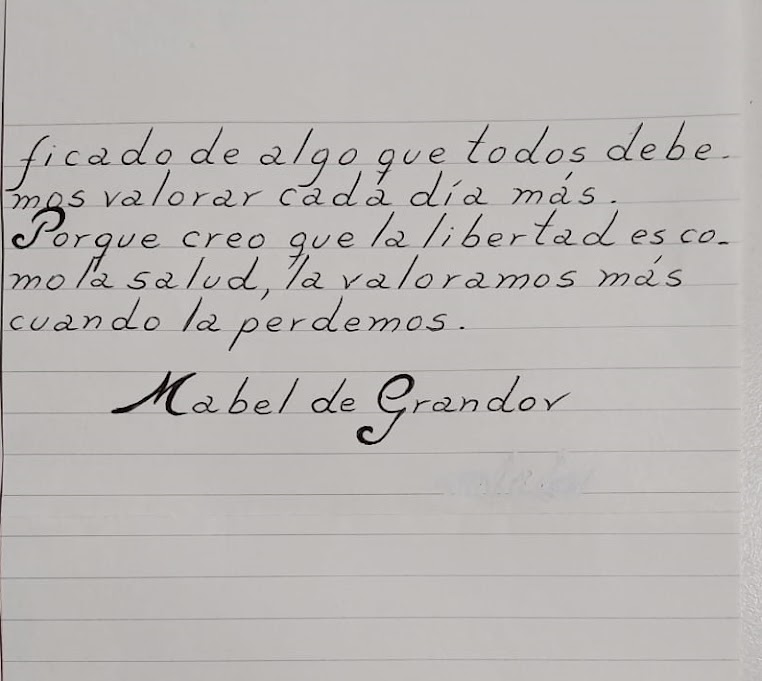 ficado de algo que todos debe-
mos valorar cada día más.
Porque creo que la libertad es co-
mo la salud, la valoramos más
cuando la perdemos.
Mabel de Grandov